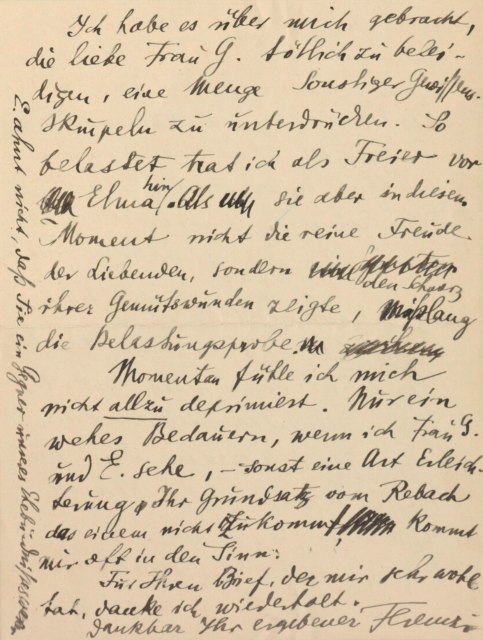 Ich habe es über mich gebracht,
die liebe Frau G. tötlich zu belei-
digen, eine Menge sonstiger Gewissens-
skrupeln zu unterdrücken. So
belastet trat ich als Freier vor
Elma hin. Als sie aber in diesem
Moment nicht die reine Freude
der Liebenden, sondern
den Schorf
ihrer Gemütswunden zeigte, misslang
die Belastungsprobe.
Momentan fühle ich mich
nicht allzu deprimiert. Nur ein
wehes Bedauern, wenn ich Frau G.
und E. sehe, – sonst eine Art Erleich-
terung. Ihr Grundsatz vom Rebach
das einem nicht zukommt, kommt
mir oft in den Sinn.
Für Ihren Brief, der mir sehr wohl
tat, danke ich wiederholt.
Dankbar Ihr ergebener Ferenczi
E. ahnt nicht, daß Sie ein Gegner unseres